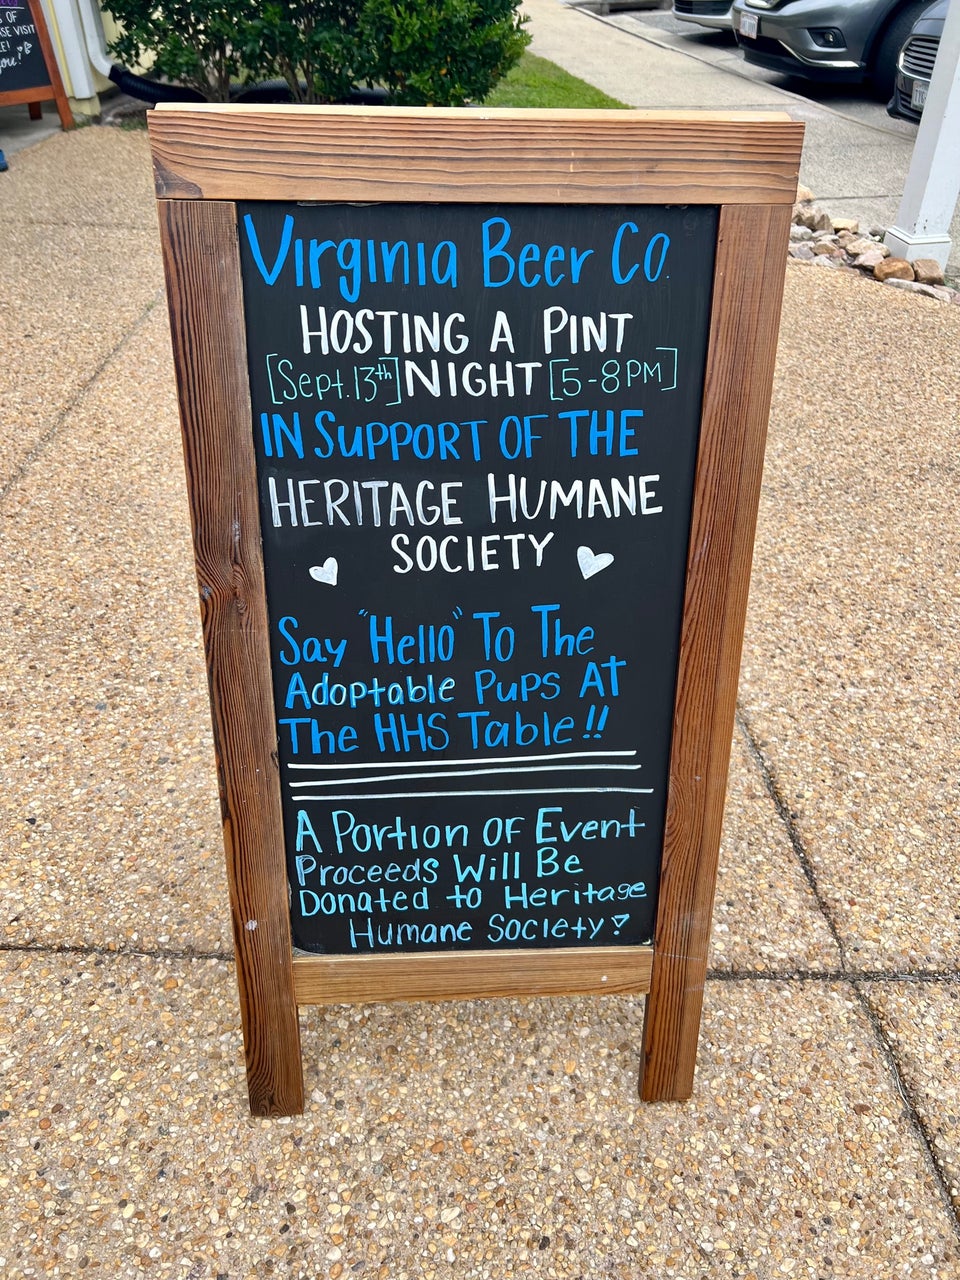 S OF
SE VISIT
E!
you!
Virginia Beer Co.
HOSTING A PINT
[Sept. 13th] NIGHT [5-8PM]
IN SUPPORT OF THE
HERITAGE HUMANE
SOCIETY
Say "Hello" To The
Adoptable Pups At
The HHS Table!!
A Portion OF Event
Proceeds Will Be
Donated to Heritage
Humane Society!